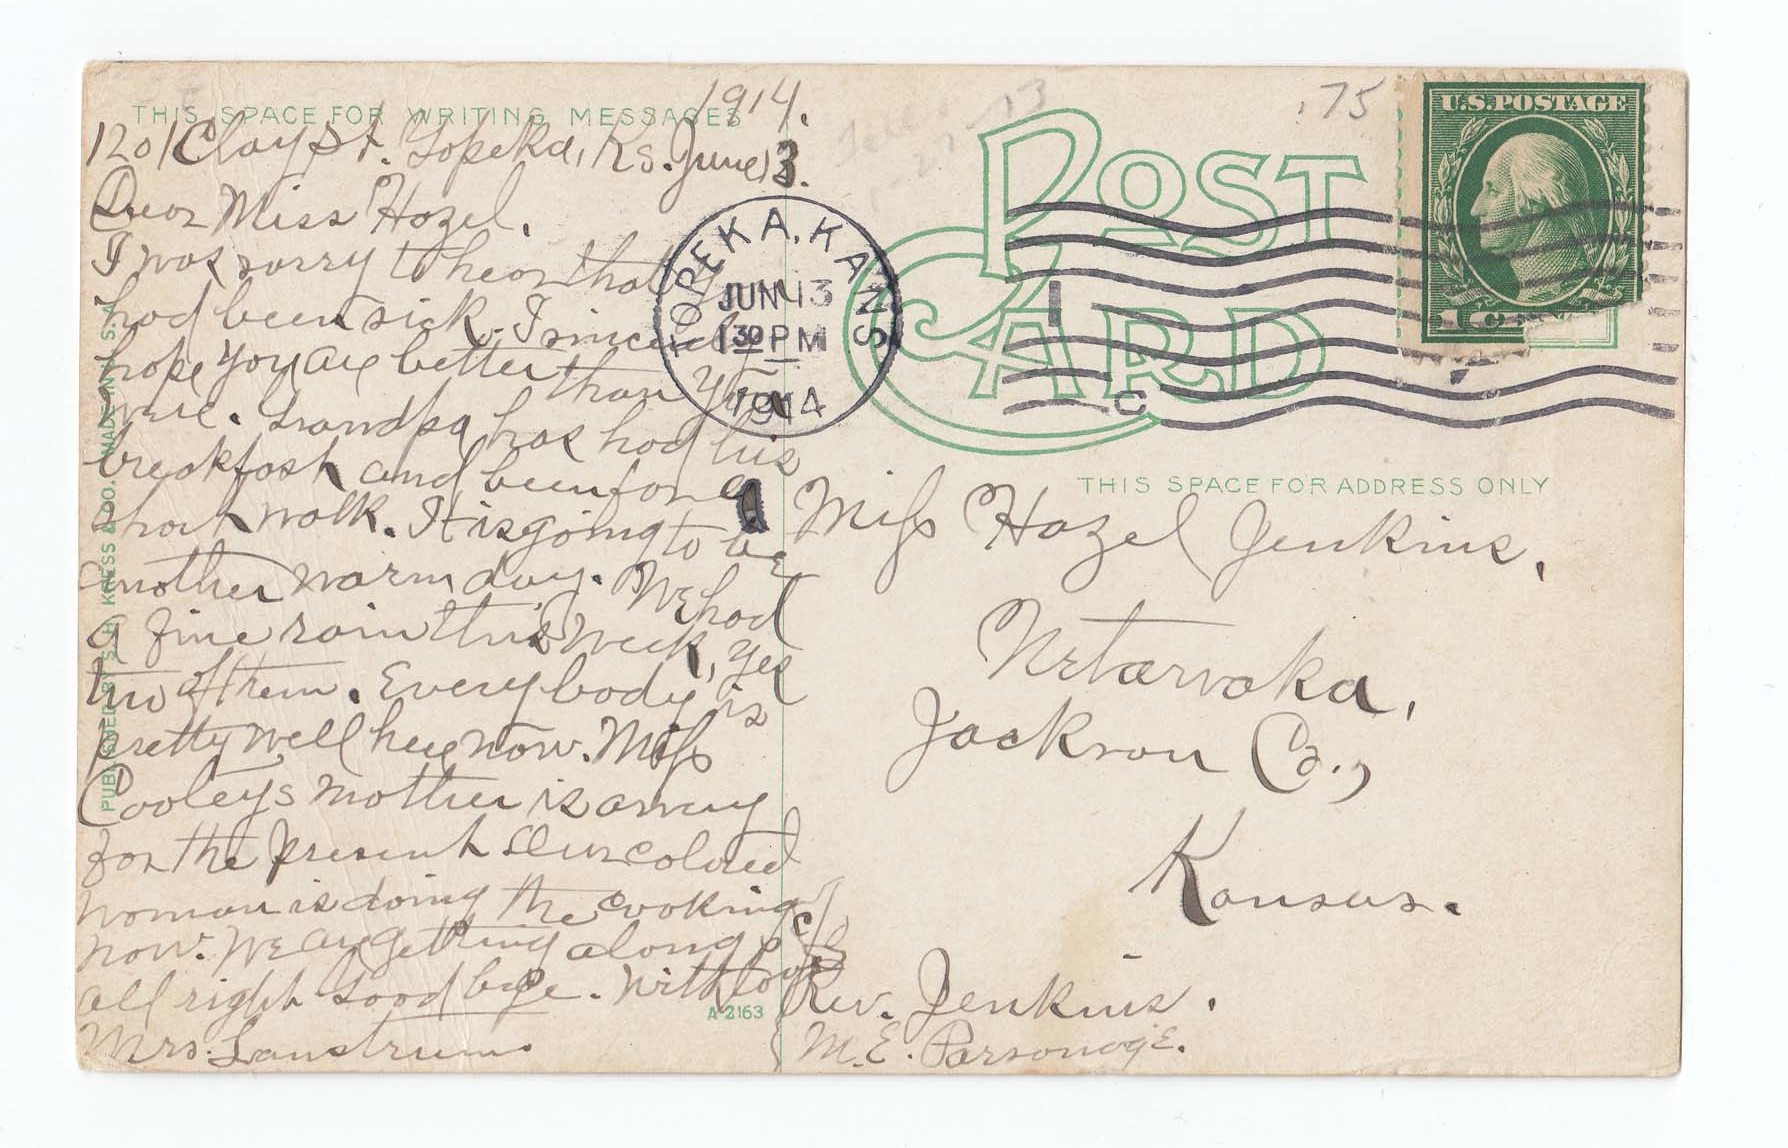 THIS SPACE FOR WRITING MESSAGES
1914.
1201 Clay St. Topeka, Ks. June 13.
Dear Miss Hazel.
I was sorry to hear that you
had been sick. I sincerely
hope you are better than you
were. Grandpa has had his
breakfast and been for a
short walk. It is going to be
another warm day. We had
a fine rain this week, yes
two of them. Everybody is
pretty well here now. Miss
Cooleys mother is away
for the present Our colored
woman is doing the cooking
now. We are getting along
all right. Good bye. With love
Mrs. Lanstrum
PUBLISHED BY S. H. KRESS & CO. MADE IN U. S. A.
A-2163
TOPEKA, KANS
JUN 13
1 30 PM
1914
POST
CARD
.75
U.S. POSTAGE
1
C
THIS SPACE FOR ADDRESS ONLY
Miss Hazel Jenkins,
Netawaka,
Jackson Co.,
Kansas.
Rev. Jenkins.
M.E. Parsonage.